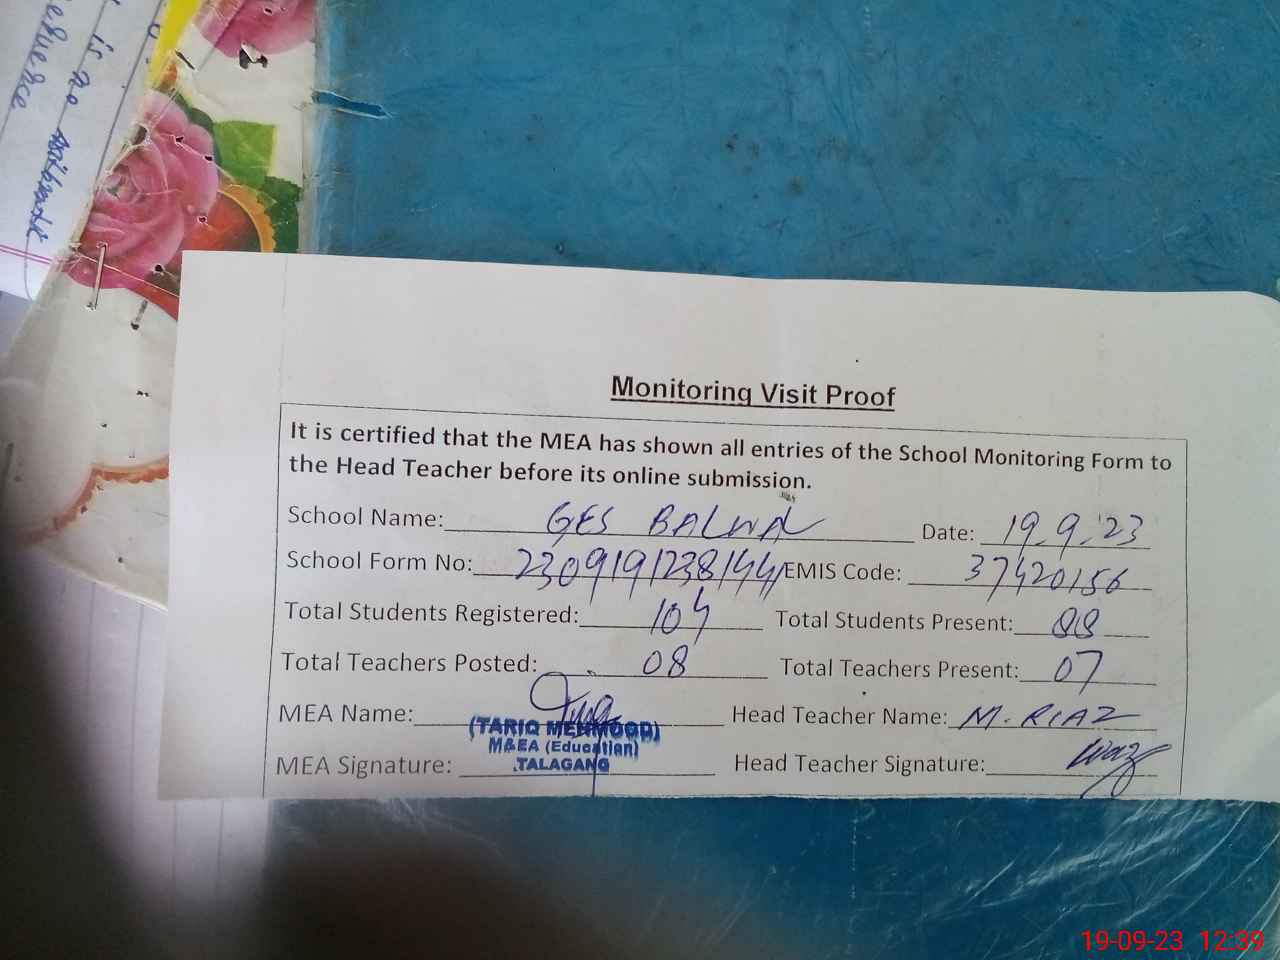 is no
Monitoring Visit Proof
It is certified that the MEA has shown all entries of the School Monitoring Form to
the Head Teacher before its online submission.
School Name: GES BALWAL Date: 19.9.'23
School Form No: 2309191238144 EMIS Code: 37420156
Total Students Registered: 104 Total Students Present: 88
Total Teachers Posted: 08 Total Teachers Present: 07
MEA Name: Head Teacher Name: M. RIAZ
(TARIQ MEHMOOD)
M&EA (Education)
MEA Signature: TALAGANG Head Teacher Signature:
19-09-23 12:39